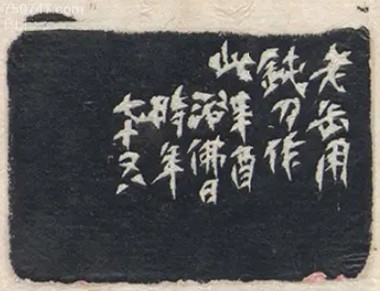 老缶用
鈍刀作
此辛酉
浴佛日
時年
七十又八